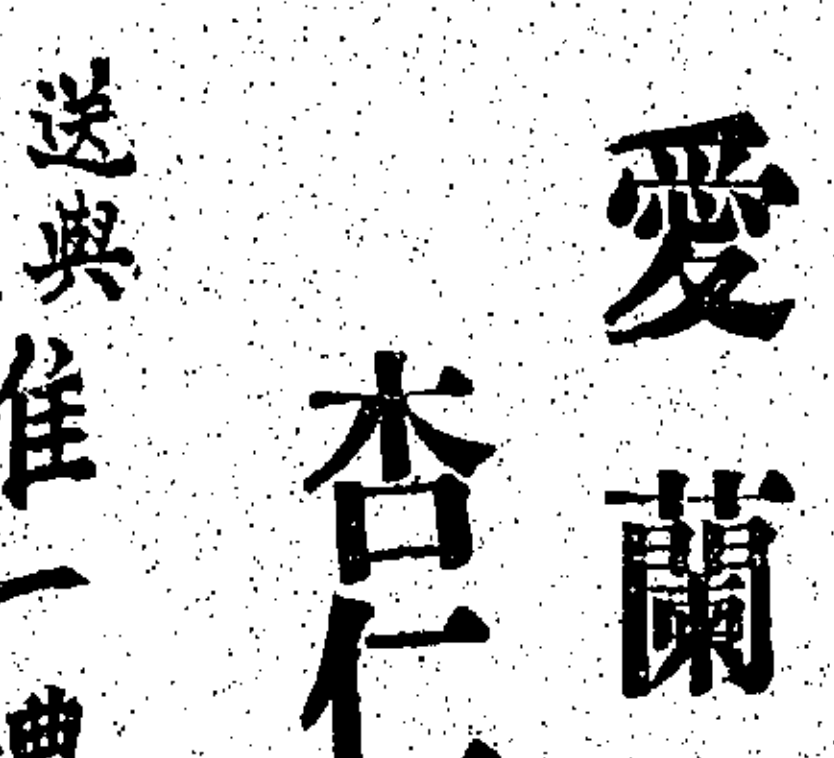 愛蘭
杏仁
送與佳一